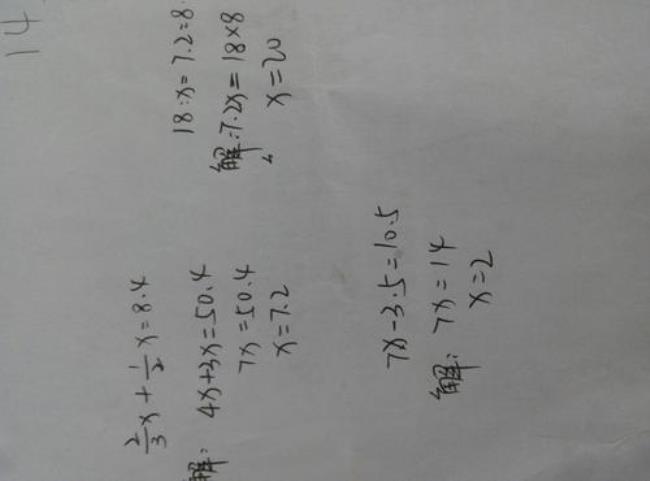 14
2/3x + 1/2x = 8.4
解: 4x+3x=50.4
7x=50.4
x=7.2
18:x=7.2:8
解:7.2x=18×8
x=20
7x-3.5=10.5
解: 7x=14
x=2